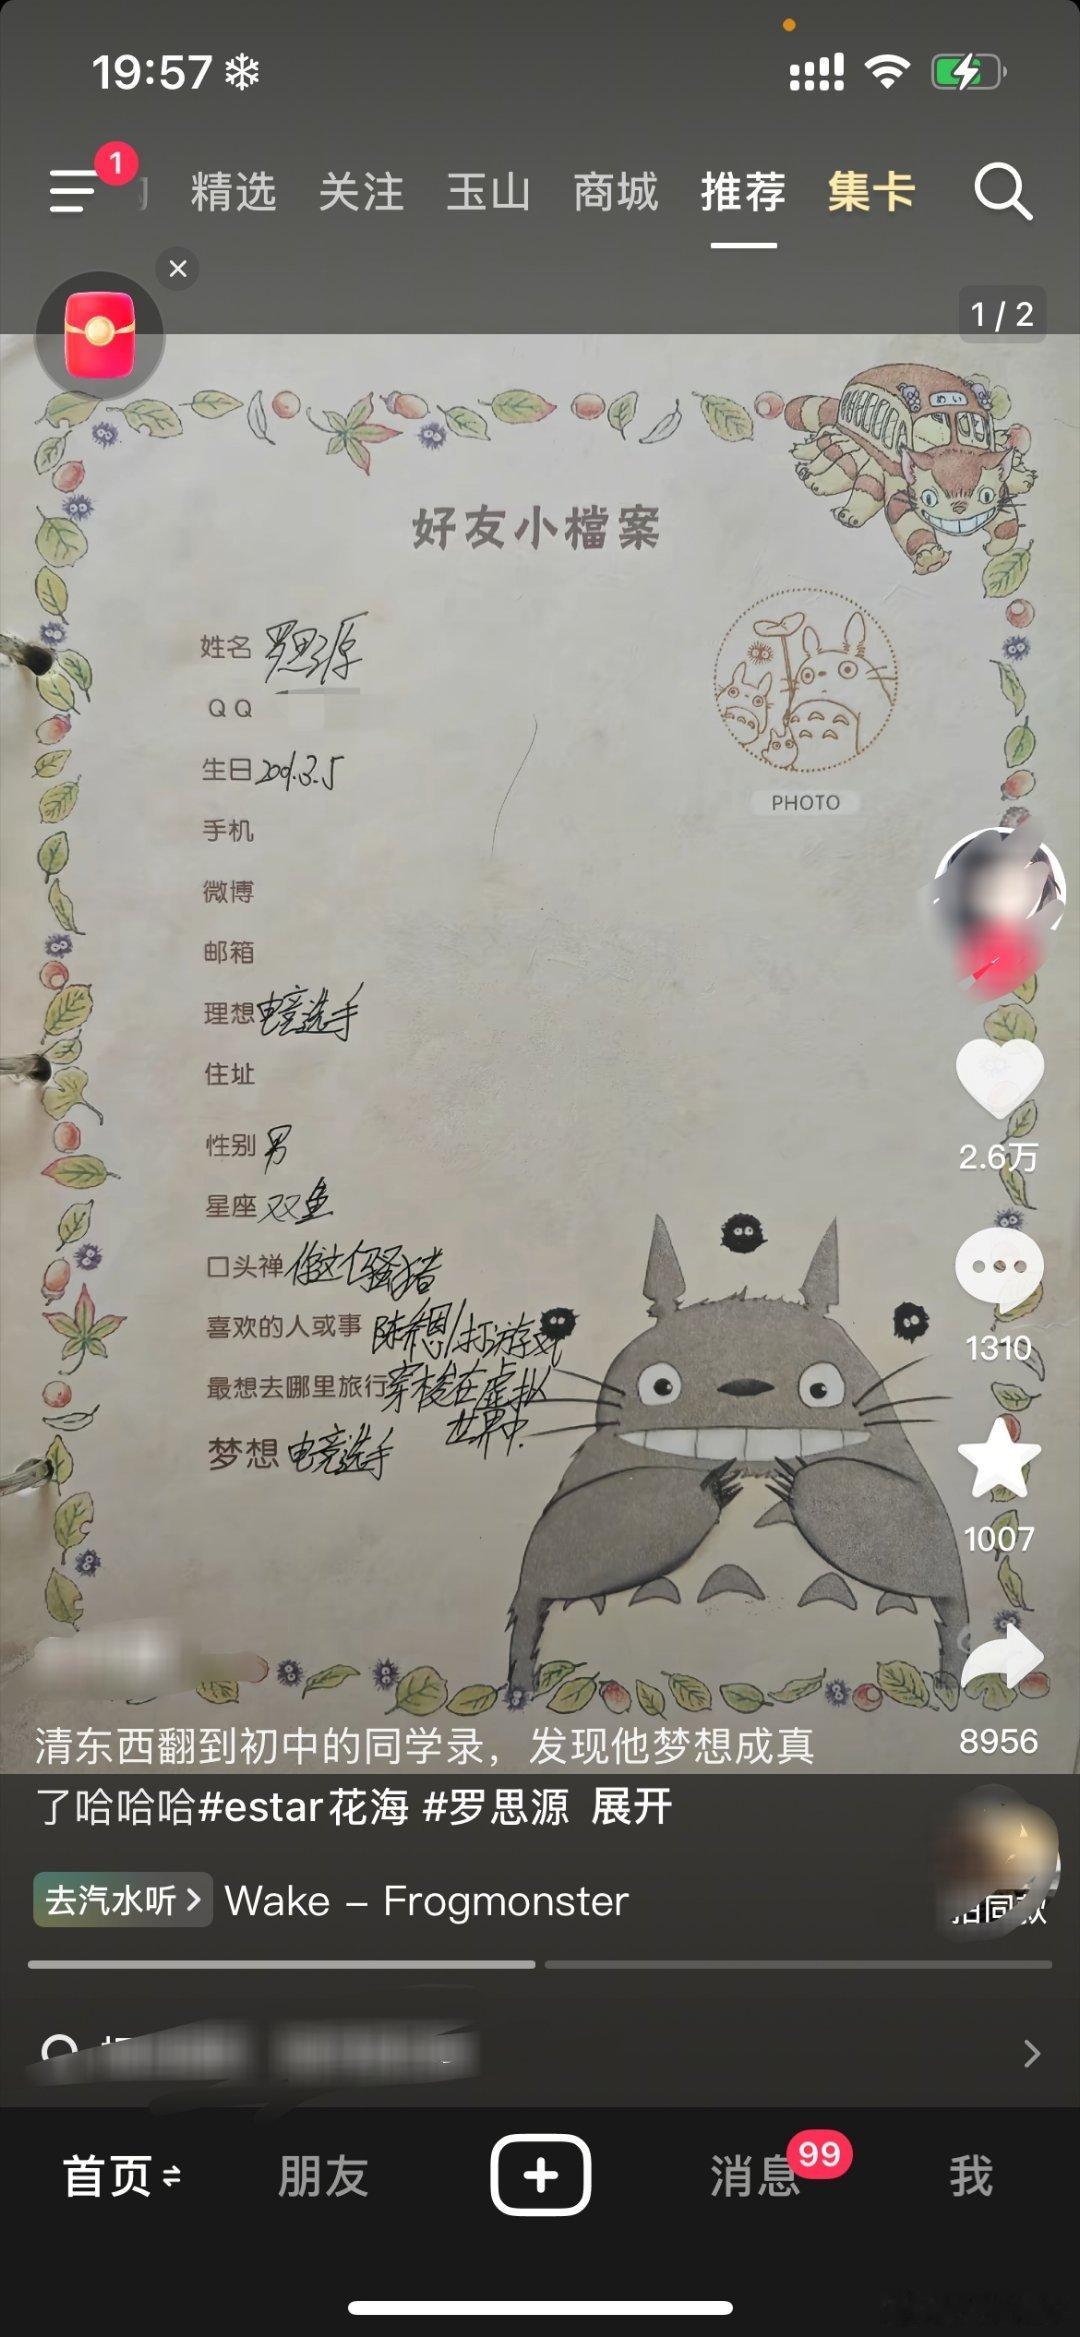 19:57
1
精选 关注 玉山 商城 推荐 集卡
1 / 2
めい
好友小檔案
姓名 罗思源
QQ
PHOTO
生日 2001.3.5
手机
微博
邮箱
理想 电竞选手
住址
性别 男
2.6万
星座 双鱼
口头禅 你这个骚猪
1310
喜欢的人或事 陈希恩/打游戏
最想去哪里旅行 穿梭在虚拟
世界中.
梦想 电竞选手
1007
清东西翻到初中的同学录，发现他梦想成真
8956
了哈哈哈#estar花海 #罗思源 展开
去汽水听 > Wake – Frogmonster
拍同款
首页 朋友 消息 99 我